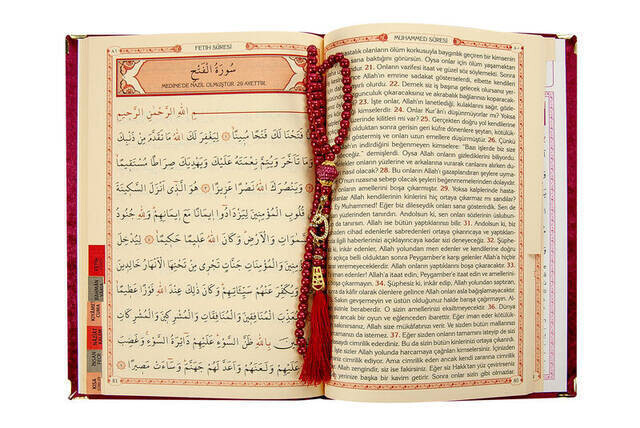 FETİH SÛRESİ
سُورَةُ الْفَتْحِ
MEDİNE'DE NAZİL OLMUŞTUR. 29 AYETTİR.
ـمِ اللهِ الرَّحْمٰنِ الرَّحِيمِ
فَتَحْنَا لَكَ فَتْحًا مُبِينًا ۝١ لِيَغْفِرَ لَكَ اللهُ مَا تَقَدَّمَ مِنْ ذَنْبِكَ
وَمَا تَأَخَّرَ وَيُتِمَّ نِعْمَتَهُ عَلَيْكَ وَيَهْدِيَكَ صِرَاطًا مُسْتَقِيمًا
وَيَنْصُرَكَ اللهُ نَصْرًا عَزِيزًا ۝٣ هُوَ الَّذِي أَنْزَلَ السَّكِينَةَ
قُلُوبِ الْمُؤْمِنِينَ لِيَزْدَادُوا إِيمَانًا مَعَ إِيمَانِهِمْ وَلِلهِ جُنُودُ
السَّمٰوَاتِ وَالْأَرْضِ وَكَانَ اللهُ عَلِيمًا حَكِيمًا ۝٤ لِيُدْخِلَ
وَالْمُؤْمِنَاتِ جَنَّاتٍ تَجْرِي مِنْ تَحْتِهَا الْأَنْهَارُ خَالِدِينَ
وَيُكَفِّرَ عَنْهُمْ سَيِّئَاتِهِمْ وَكَانَ ذٰلِكَ عِنْدَ اللهِ فَوْزًا عَظِيمًا
الْمُنَافِقِينَ وَالْمُنَافِقَاتِ وَالْمُشْرِكِينَ وَالْمُشْرِكَاتِ
بِاللهِ ظَنَّ السَّوْءِ عَلَيْهِمْ دَائِرَةُ السَّوْءِ وَغَضِبَ
عَلَيْهِمْ وَلَعَنَهُمْ وَأَعَدَّ لَهُمْ جَهَنَّمَ وَسَاءَتْ مَصِيرًا
MUHAMMED SÛRESİ
hastalık olanların ölüm korkusuyla baygınlık geçiren bir kimsenin
sana baktığını görürsün. Oysa onlar için ölüm yaşamaktan
21. Onların vazifesi itaat ve güzel söz söylemekti. Sonra
Allah'ın emrine sadakat gösterselerdi, elbette kendileri
olurdu. 22. Demek siz iş başına gelecek olursanız
bozgunculuk çıkaracaksınız ve akrabalık bağlarınızı koparacak-
23. İşte onlar, Allah'ın lanetlediği, kulaklarını sağır, gözle-
24. Onlar Kur'an'ı düşünmüyorlar mı? Yoksa
kilitleri mi var? 25. Gerçekten doğru yol kendilerine
olduktan sonra gerisin geri küfre dönenlere şeytan, kötülük-
26. Çünkü
indirdiğini beğenmeyen kimselere: "Bazı işlerde biz size
demişlerdi. Oysa Allah onların gizlediklerini biliyordu.
onların yüzlerine ve arkalarına vurarak canlarını alırken durum-
28. Bu onların Allah'ı gazaplandıran şeylere uyma-
rızasına sebep olacak şeyleri beğenmemelerinden dolayıdır.
onların amellerini boşa çıkarmıştır. 29. Yoksa kalplerinde hasta-
Allah kendilerinin kinlerini hiç ortaya çıkarmaz mı sandılar?
Ey Muhammed! Eğer biz dileseydik onları sana gösterirdik. Sen de
yüzlerinden tanırdın. Andolsun ki, sen onları sözlerinin üslubun-
tanırsın. Allah ise bütün yaptıklarınızı bilir. 31. Andolsun ki, biz
cihad edenlerle sabredenleri ortaya çıkarıncaya ve yaptıkla-
ilgili haberlerinizi açıklayıncaya kadar sizi deneyeceğiz. 32. Şüphe-
inkâr edenler, Allah yolundan men edenler ve kendilerine doğru
belli olduktan sonra Peygamber'e karşı gelenler Allah'a hiçbir
veremeyeceklerdir. Allah onların yaptıklarını boşa çıkaracaktır. 33.
iman edenler! Allah'a itaat edin, Peygamber'e itaat edin ve amellerini
çıkarmayın. 34. Şüphesiz ki, inkâr edip, Allah yolundan saptıran,
da kâfir olarak ölenlere gelince Allah onları asla bağışlamayacaktır.
Sakın gevşemeyin ve üstün olduğunuz halde barışa çağırmayın. Al-
sizinle beraberdir. O sizin amellerinizi eksiltmeyecektir. 36. Dünya
ancak bir oyun ve eğlenceden ibarettir. Eğer iman eder kötülük-
sakınırsanız, Allah size mükâfatınızı verir. Ve sizden bütün mallarınızı
da istemez. 37. Eğer sizden onların tamamını isteyip de sizi
cimrilik ederdiniz. Bu da sizin bütün kinlerinizi ortaya çıkarırdı.
işte Allah yolunda harcamaya çağrılan kimselersiniz. İçinizden
cimrilik ediyor. Ama cimrilik eden ancak kendi zararına cimrilik
Allah zengindir, siz ise fakirsiniz. Eğer siz Hakk'tan yüz çevirirseniz
yerinize başka bir kavim getirir. Sonra onlar sizin gibi olmazlar.